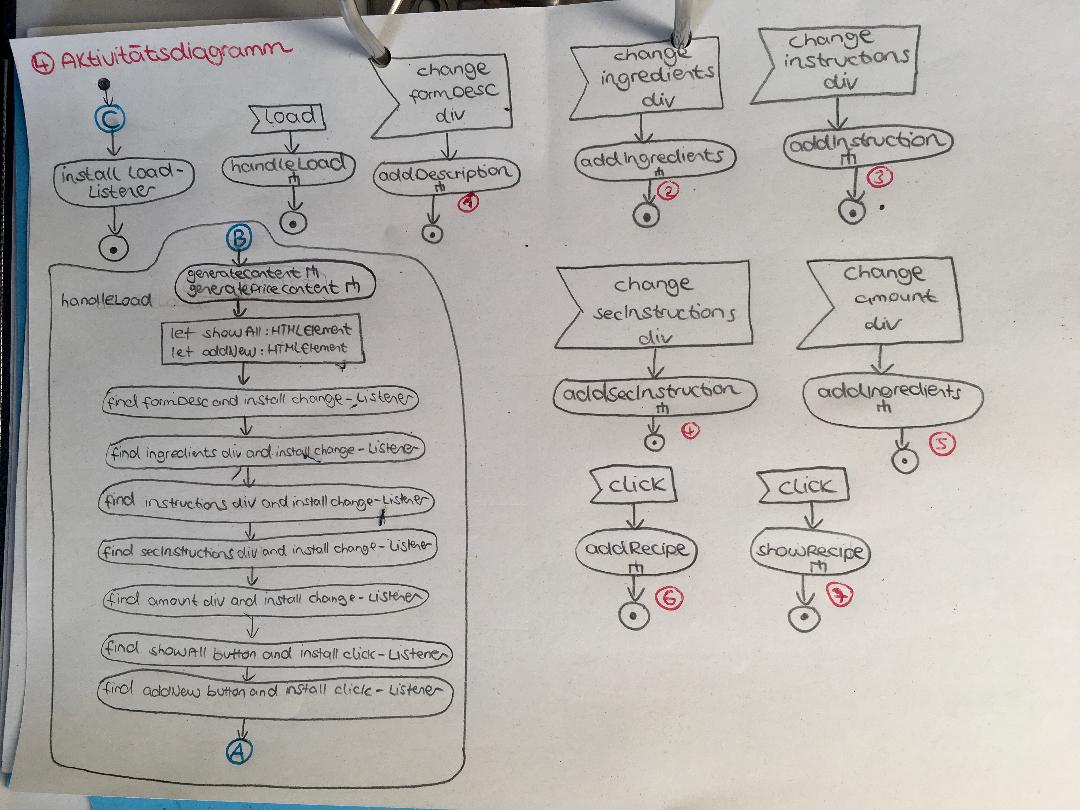 ④ Aktivitätsdiagramm
C
install load-
Listener
load
handleLoad
change
formDesc
div
addDescription
①
change
ingredients
div
addIngredients
②
change
instructions
div
addInstruction
③
B
handleLoad
generatecontent
generatePricecontent
let showAll: HTMLElement
let addNew: HTMLElement
find formDesc and install change-Listener
find ingredients div and install change-Listener
find instructions div and install change-Listener
find secInstructions div and install change-Listener
find amount div and install change-Listener
find showAll button and install click-Listener
find addNew button and install click-Listener
A
change
secInstructions
div
addsecInstruction
④
change
amount
div
addIngredients
⑤
click
addRecipe
⑥
click
showRecipe
⑦